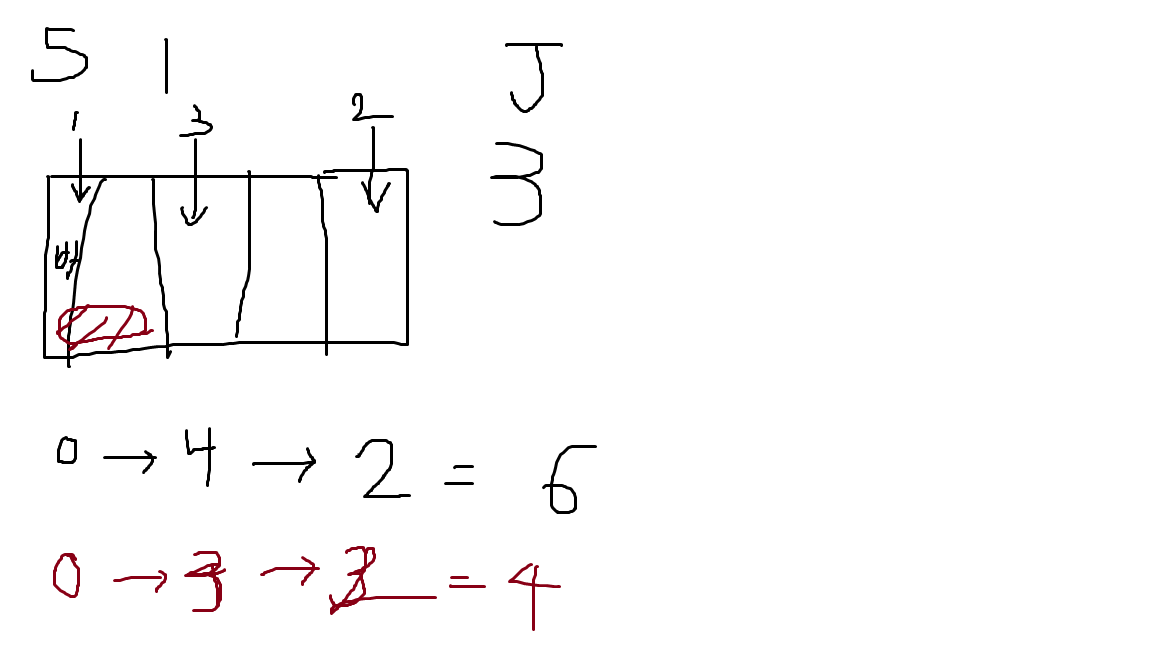 5 1 J
1 3 2 3
0 → 4 → 2 = 6
0 → 3 → = 4